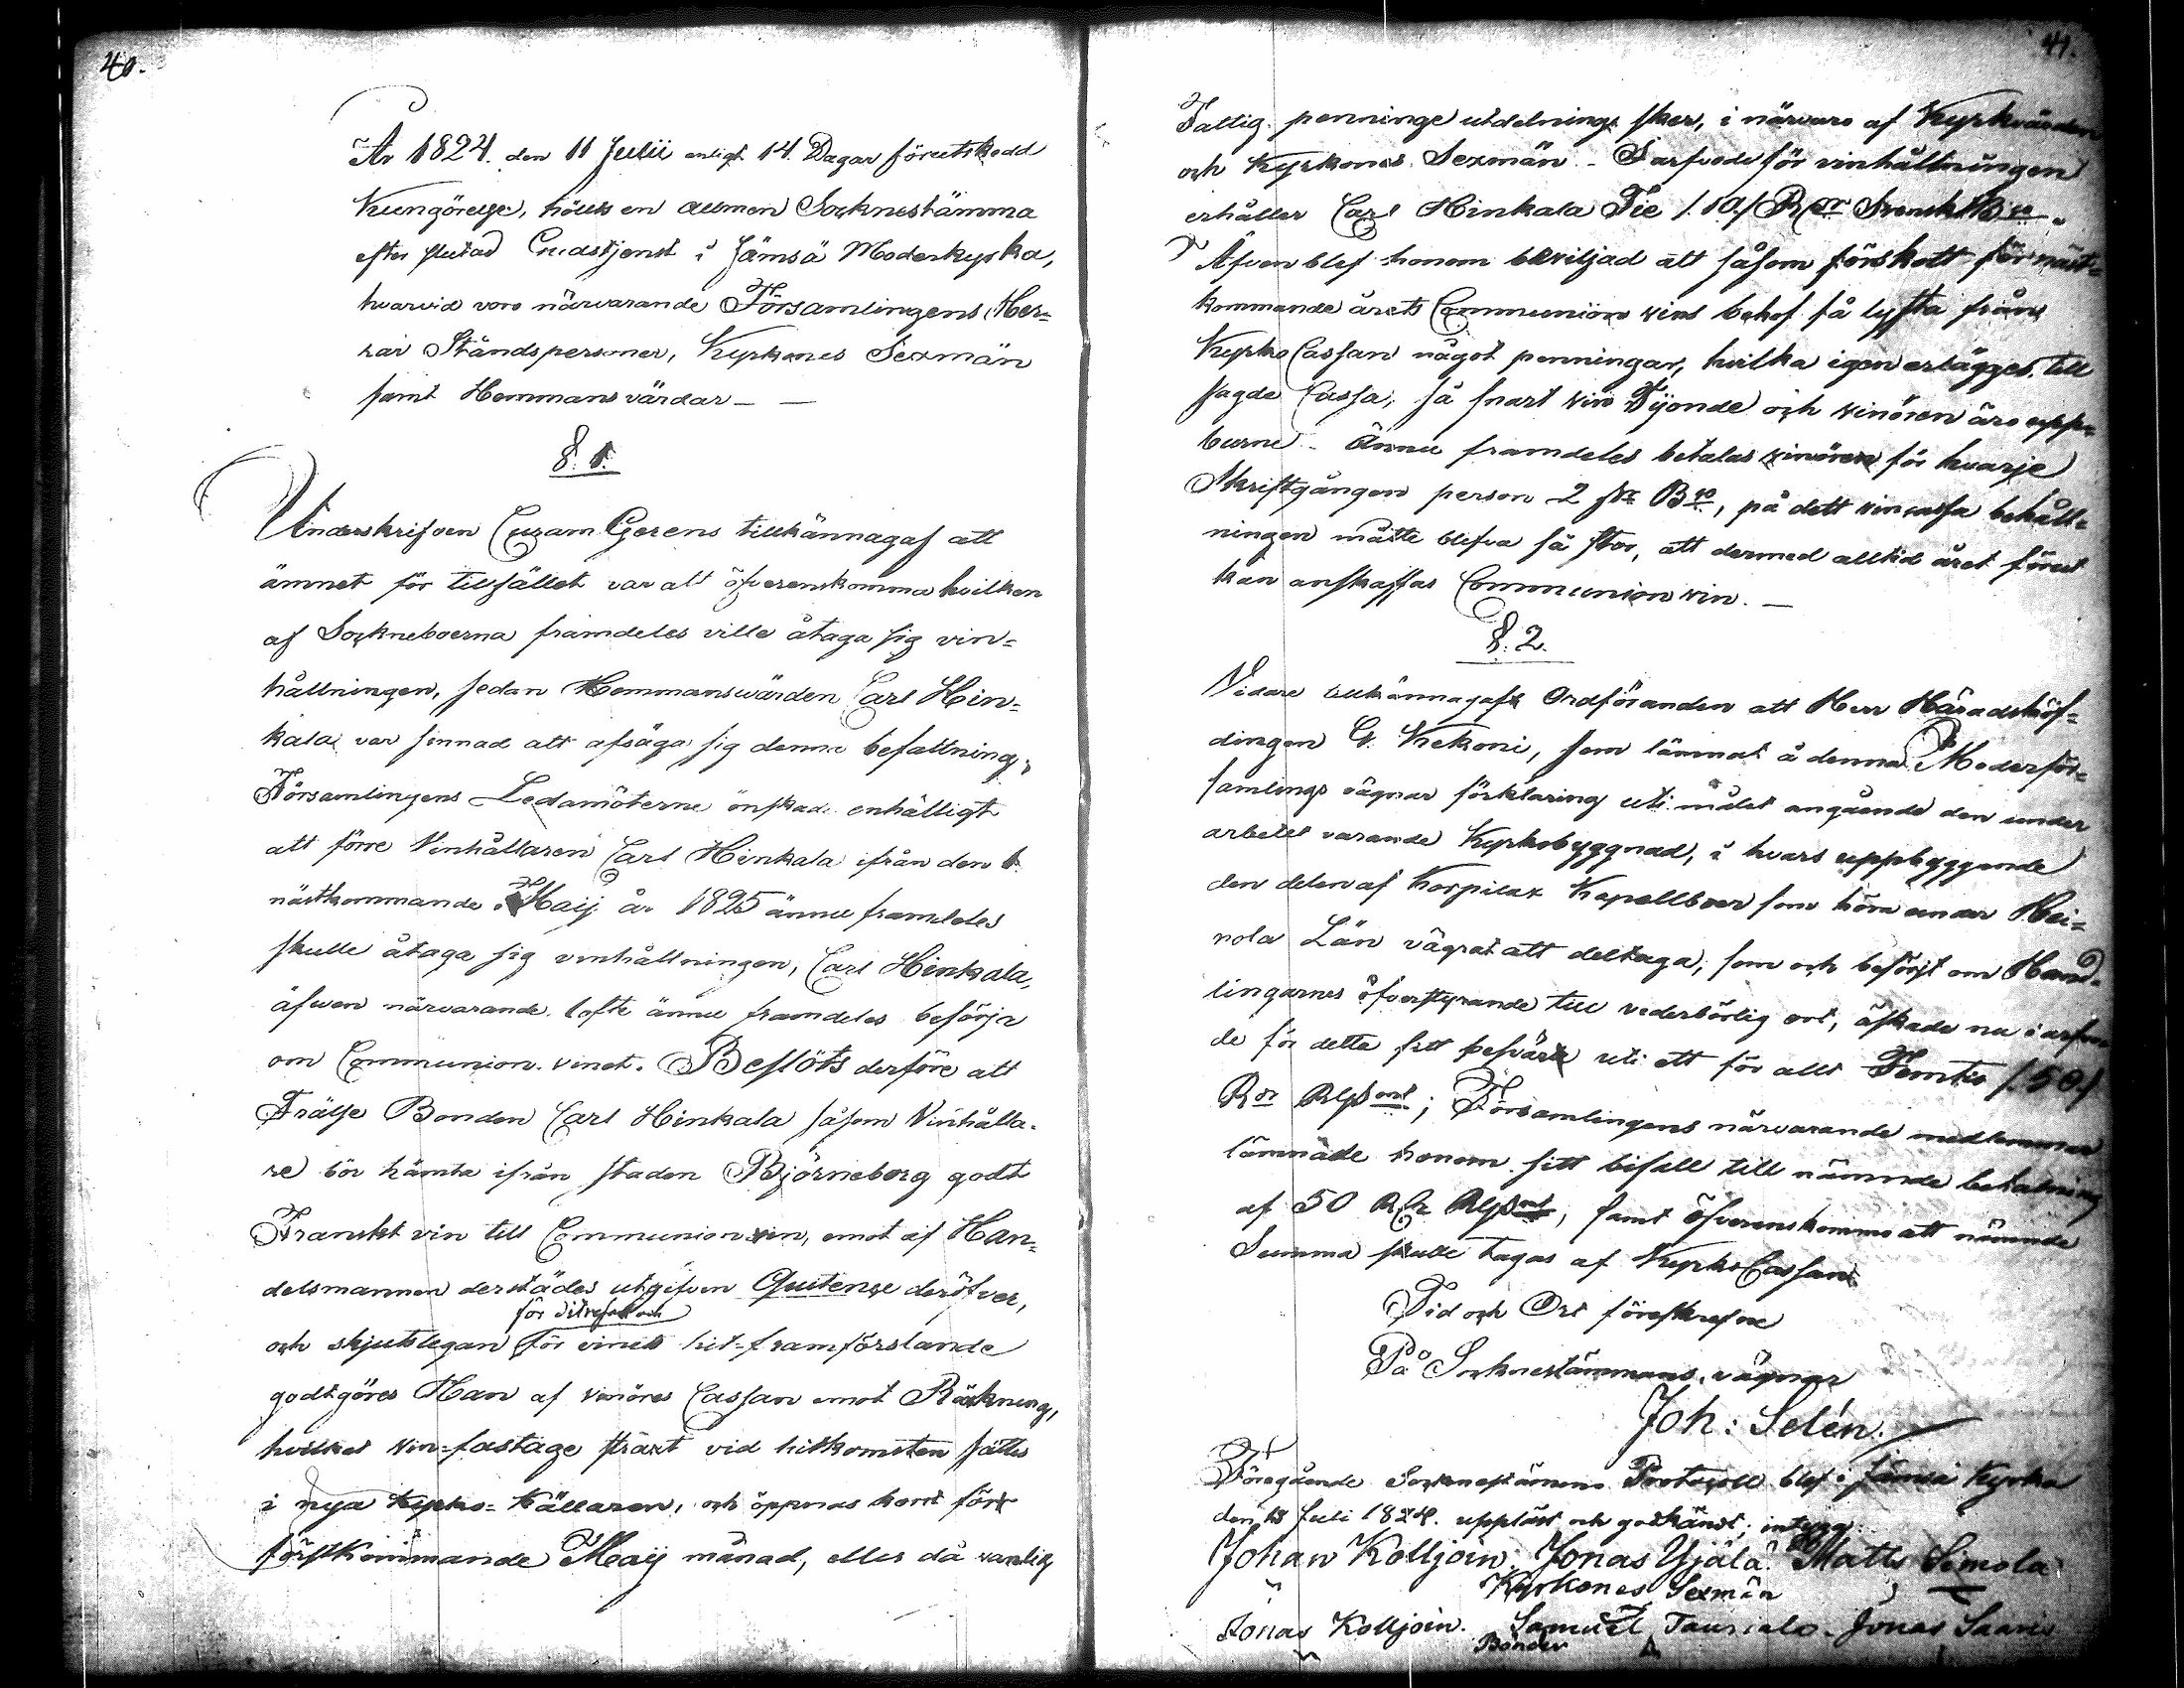 40.
År 1824. den 11 Julii enligt 14. Dagar förutskedd
Kungörelse, hölls en allmen Socknestämma
efter slutad Gudstjenst i Jämsä Moderkyrka,
hvarvid voro närvarande Församlingens Her=
rar Ståndspersoner, Kyrkones Sexmän
samt Hemmansvärdar —
§. 1.
Underskrifven Curam Gerens tillkännagaf att
ämnet för tillfället var att öfverenskomma hvilken
af Sockneboerna framdeles ville åtaga sig vin=
hållningen, sedan Hemmanswärden Carl Hin=
kala var sinnad att afsäga sig denne befattning,
Församlingens Ledamöterne önskade enhälligt
att förre Vinhållaren Carl Hinkala ifrån den 1.
nästkommande Maij år 1825 ännu framdeles
skulle åtaga sig vinhållningen, Carl Hinkala,
äfwen närvarande, lofte ännu framdeles besörja
om Communion vinet. Beslöts derföre att
Frälse Bonden Carl Hinkala såsom Vinhålla=
re bör hämta ifrån staden Björneborg godt
Franskt vin till Communion vin, emot af Han=
delsmannen derstädes utgifven Quitense deröfver,
för ditresan och
och skjutslegan för vinets hit-framförslande
godtgöres Han af vinöres Cassan emot Räkning,
hvilket vin-fastage straxt vid hitkomsten sättes
i nya Kyrko-Källaren, och öppnas hvart före
förstkommande Maij månad, eller då vanlig
41.
Fattig penninge utdelninge sker, i närvaro af Kyrkvärden
och Kyrkones Sexmän - I arfvode för vinhållningen
erhåller Carl Hinkala Tie /.10./ R:dr Svensk B:co.
Äfven blef honom beviljad att såsom förskott för näst=
kommande årets Communions vins behof få lyfta från
Kyrko Cassan något penningar, hvilka igen erlägges till
sagde Cassa, så snart vin Tijonde och vinören äro upp=
burne - Ännu framdeles betalas vinören för hvarje
Skriftgången person 2 sk B:co, på dett vin cassa behåll=
ningen måtte blifva så stor, att dermed alltid året förut
kan anskaffas Communion vin. —
§. 2.
Vidare tillkännagaf Ordföranden att Herr Häradshöf=
dingen G. Kekoni, som lämnat å denna Moderför=
samlings vägnar förklaring uti målet angående den under
arbete varande Kyrkobyggnad, i hvars uppbyggande
den delen af Korpilax Kapellboer som höra under Hei=
nola Län vägrat att deltaga, som och besörjt om Hand=
lingarnes öfverstyrande till vederbörlig ort, äskade nu i arfvo=
de för detta sitt besvär uti ett för allt Femtio /.50./
R:dr RGS:mt; Församlingens närvarande medlemmar
lämnade honom sitt bifall till nämnde betalning
af 50 R:dr RGS:mt, samt öfverenskommo att nämnde
Summa skulle tagas af Kyrko Cassan
Tid och Ort föreskrefne
På Socknestämmans vägnar
Joh: Selén.
Föregående Sockenstämmo Protocoll blef i Jämsä Kyrka
den 18 Juli 1824. uppläst och godkändt; intyga:
Johan Kolljoin. Jonas Yjälä. Matts Simola
Kyrkones Sexmän
Jonas Kolljoin. Samuel Taurialo. Jonas Saaris
Bönder